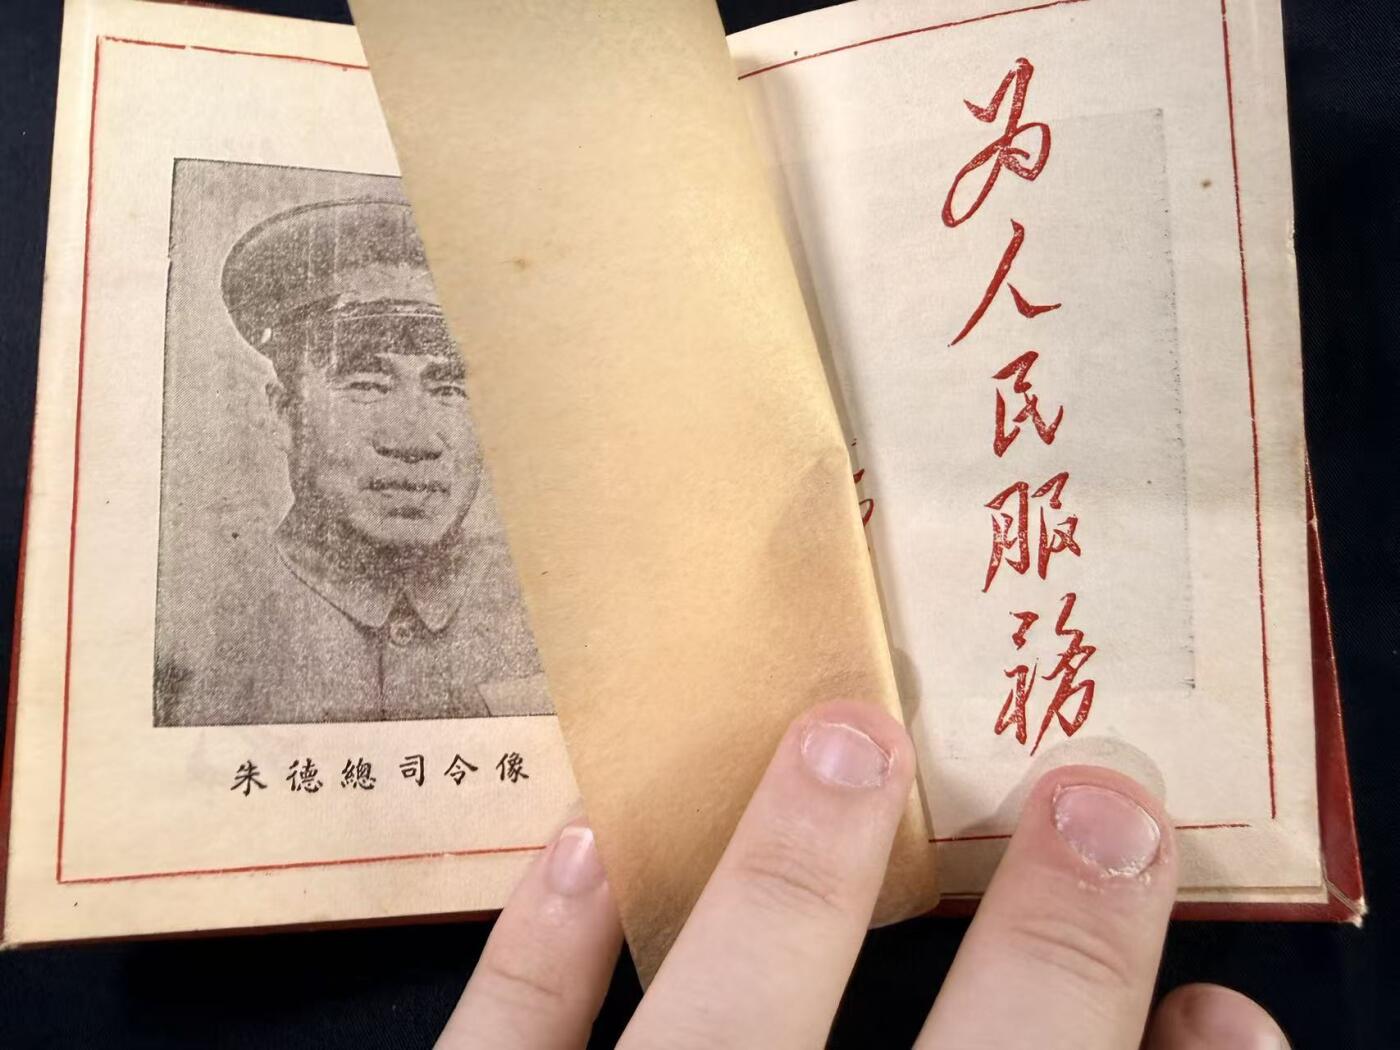 朱德總司令像
为人民服務